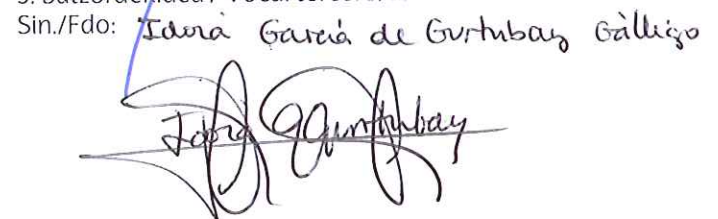 Sin./Fdo: Idoia García de Gurtubay Gállego
Idoia G Gurtubay